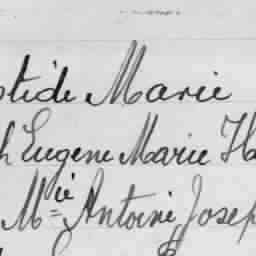 tide Marie
h Eugene Marie Ha
Mie Antoine Joseph